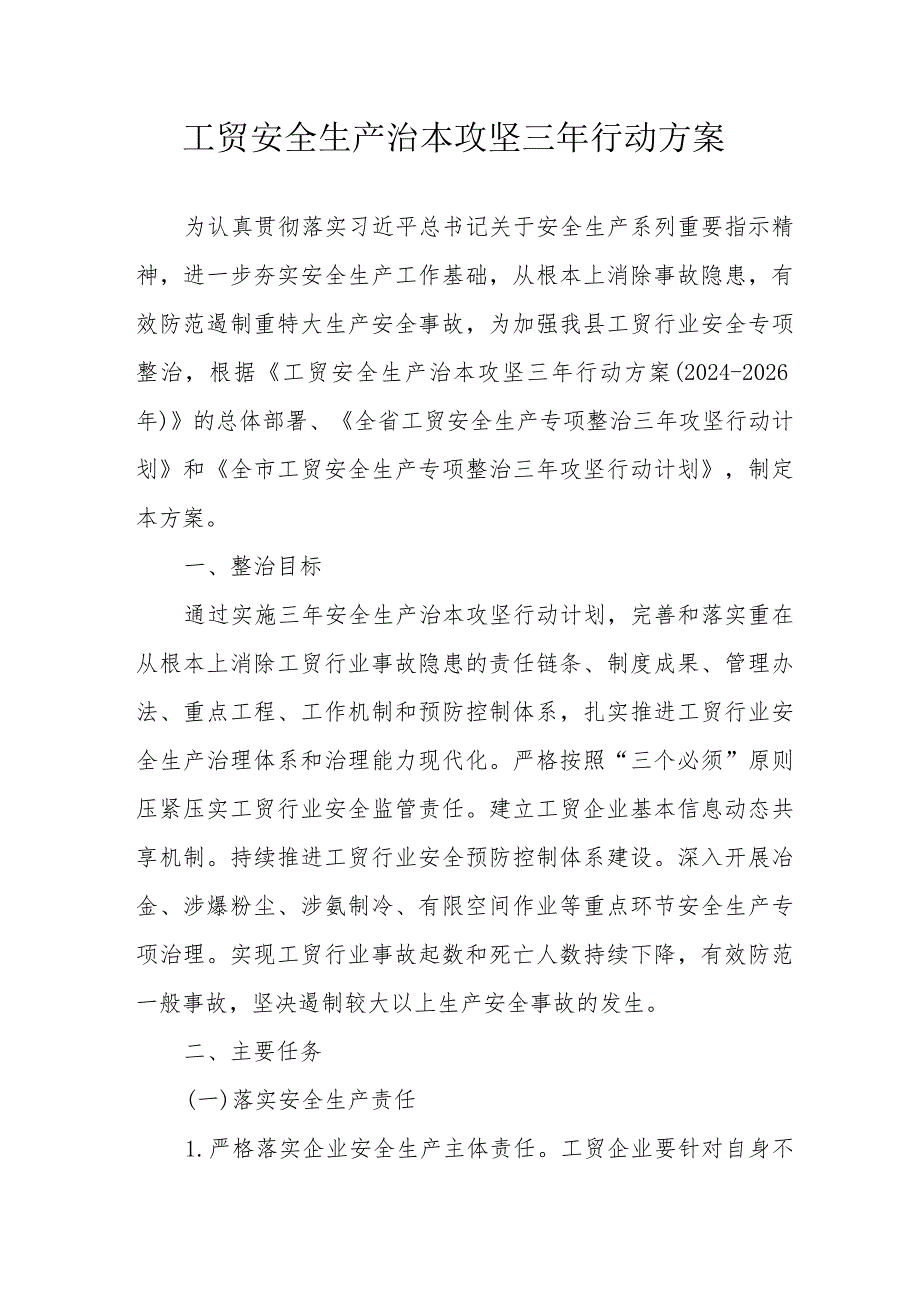 工贸安全生产治本攻坚三年行动方案
为认真贯彻落实习近平总书记关于安全生产系列重要指示精
神，进一步夯实安全生产工作基础，从根本上消除事故隐患，有
效防范遏制重特大生产安全事故，为加强我县工贸行业安全专项
整治，根据《工贸安全生产治本攻坚三年行动方案(2024-2026
年)》的总体部署、《全省工贸安全生产专项整治三年攻坚行动计
划》和《全市工贸安全生产专项整治三年攻坚行动计划》，制定
本方案。
一、整治目标
通过实施三年安全生产治本攻坚行动计划，完善和落实重在
从根本上消除工贸行业事故隐患的责任链条、制度成果、管理办
法、重点工程、工作机制和预防控制体系，扎实推进工贸行业安
全生产治理体系和治理能力现代化。严格按照“三个必须”原则
压紧压实工贸行业安全监管责任。建立工贸企业基本信息动态共
享机制。持续推进工贸行业安全预防控制体系建设。深入开展冶
金、涉爆粉尘、涉氨制冷、有限空间作业等重点环节安全生产专
项治理。实现工贸行业事故起数和死亡人数持续下降，有效防范
一般事故，坚决遏制较大以上生产安全事故的发生。
二、主要任务
(一)落实安全生产责任
1.严格落实企业安全生产主体责任。工贸企业要针对自身不